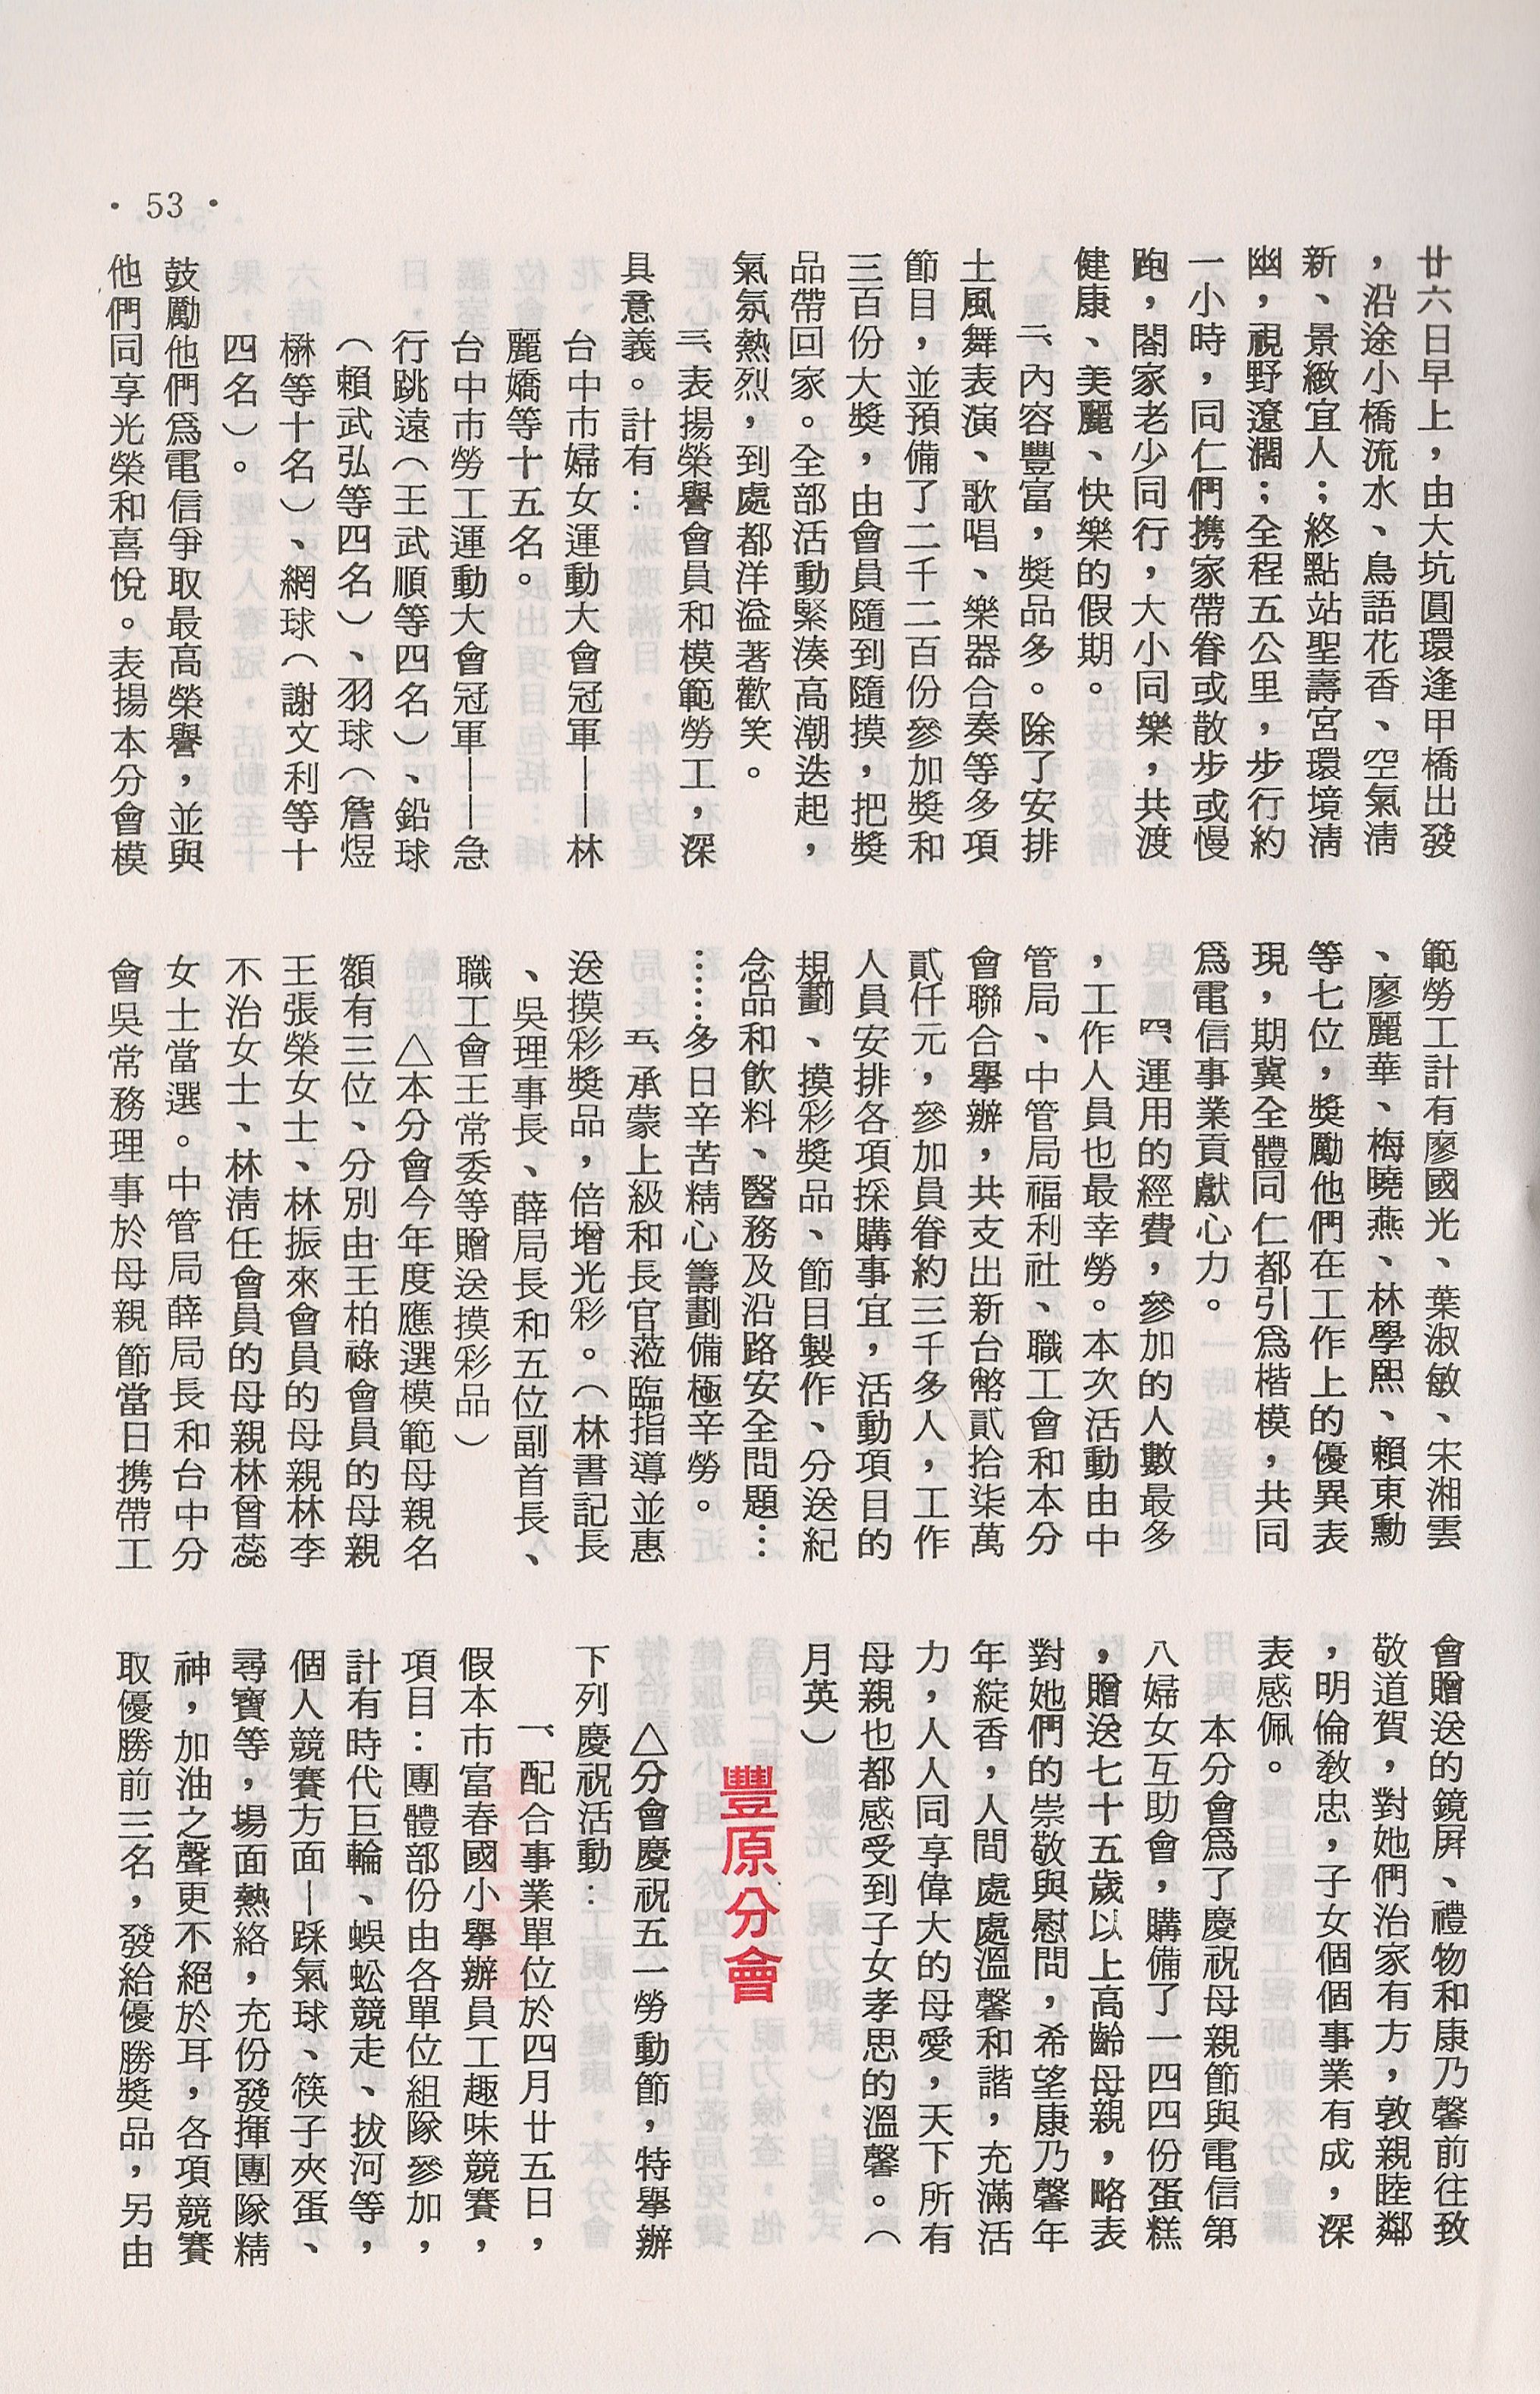 · 53 ·
廿六日早上，由大坑圓環逢甲橋出發
，沿途小橋流水、鳥語花香、空氣淸
新、景緻宜人；終點站聖壽宮環境淸
幽，視野遼濶；全程五公里，步行約
一小時，同仁們携家帶眷或散步或慢
跑，閤家老少同行，大小同樂，共渡
健康、美麗、快樂的假期。
二、內容豐富，獎品多。除了安排
土風舞表演、歌唱、樂器合奏等多項
節目，並預備了二千二百份參加獎和
三百份大獎，由會員隨到隨摸，把獎
品帶回家。全部活動緊湊高潮迭起，
氣氛熱烈，到處都洋溢著歡笑。
三、表揚榮譽會員和模範勞工，深
具意義。計有：
台中市婦女運動大會冠軍——林
麗嬌等十五名。
台中市勞工運動大會冠軍——急
行跳遠（王武順等四名）、鉛球
（賴武弘等四名）、羽球（詹煜
楙等十名）、網球（謝文利等十
四名）。
鼓勵他們爲電信爭取最高榮譽，並與
他們同享光榮和喜悅。表揚本分會模
範勞工計有廖國光、葉淑敏、宋湘雲
、廖麗華、梅曉燕、林學熙、賴東勳
等七位，獎勵他們在工作上的優異表
現，期冀全體同仁都引爲楷模，共同
爲電信事業貢獻心力。
四、運用的經費，參加的人數最多
，工作人員也最幸勞。本次活動由中
管局、中管局福利社、職工會和本分
會聯合舉辦，共支出新台幣貳拾柒萬
貳仟元，參加員眷約三千多人，工作
人員安排各項採購事宜，活動項目的
規劃、摸彩獎品、節目製作、分送紀
念品和飲料、醫務及沿路安全問題…
……多日辛苦精心籌劃備極辛勞。
五、承蒙上級和長官蒞臨指導並惠
送摸彩獎品，倍增光彩。（林書記長
、吳理事長、薛局長和五位副首長、
職工會王常委等贈送摸彩品）
△本分會今年度應選模範母親名
額有三位、分別由王柏祿會員的母親
王張榮女士、林振來會員的母親林李
不治女士、林淸任會員的母親林曾蕊
女士當選。中管局薛局長和台中分
會吳常務理事於母親節當日携帶工
會贈送的鏡屏、禮物和康乃馨前往致
敬道賀，對她們治家有方，敦親睦鄰
，明倫敎忠，子女個個事業有成，深
表感佩。
本分會爲了慶祝母親節與電信第
八婦女互助會，購備了一四四份蛋糕
，贈送七十五歲以上高齡母親，略表
對她們的崇敬與慰問，希望康乃馨年
年綻香，人間處處溫馨和諧，充滿活
力，人人同享偉大的母愛，天下所有
母親也都感受到子女孝思的溫馨。（
月英）
豐原分會
△分會慶祝五一勞動節，特舉辦
下列慶祝活動：
一、配合事業單位於四月廿五日，
假本市富春國小舉辦員工趣味競賽，
項目：團體部份由各單位組隊參加，
計有時代巨輪、蜈蚣競走、拔河等，
個人競賽方面—踩氣球、筷子夾蛋、
尋寶等，場面熱絡，充份發揮團隊精
神，加油之聲更不絕於耳，各項競賽
取優勝前三名，發給優勝獎品，另由